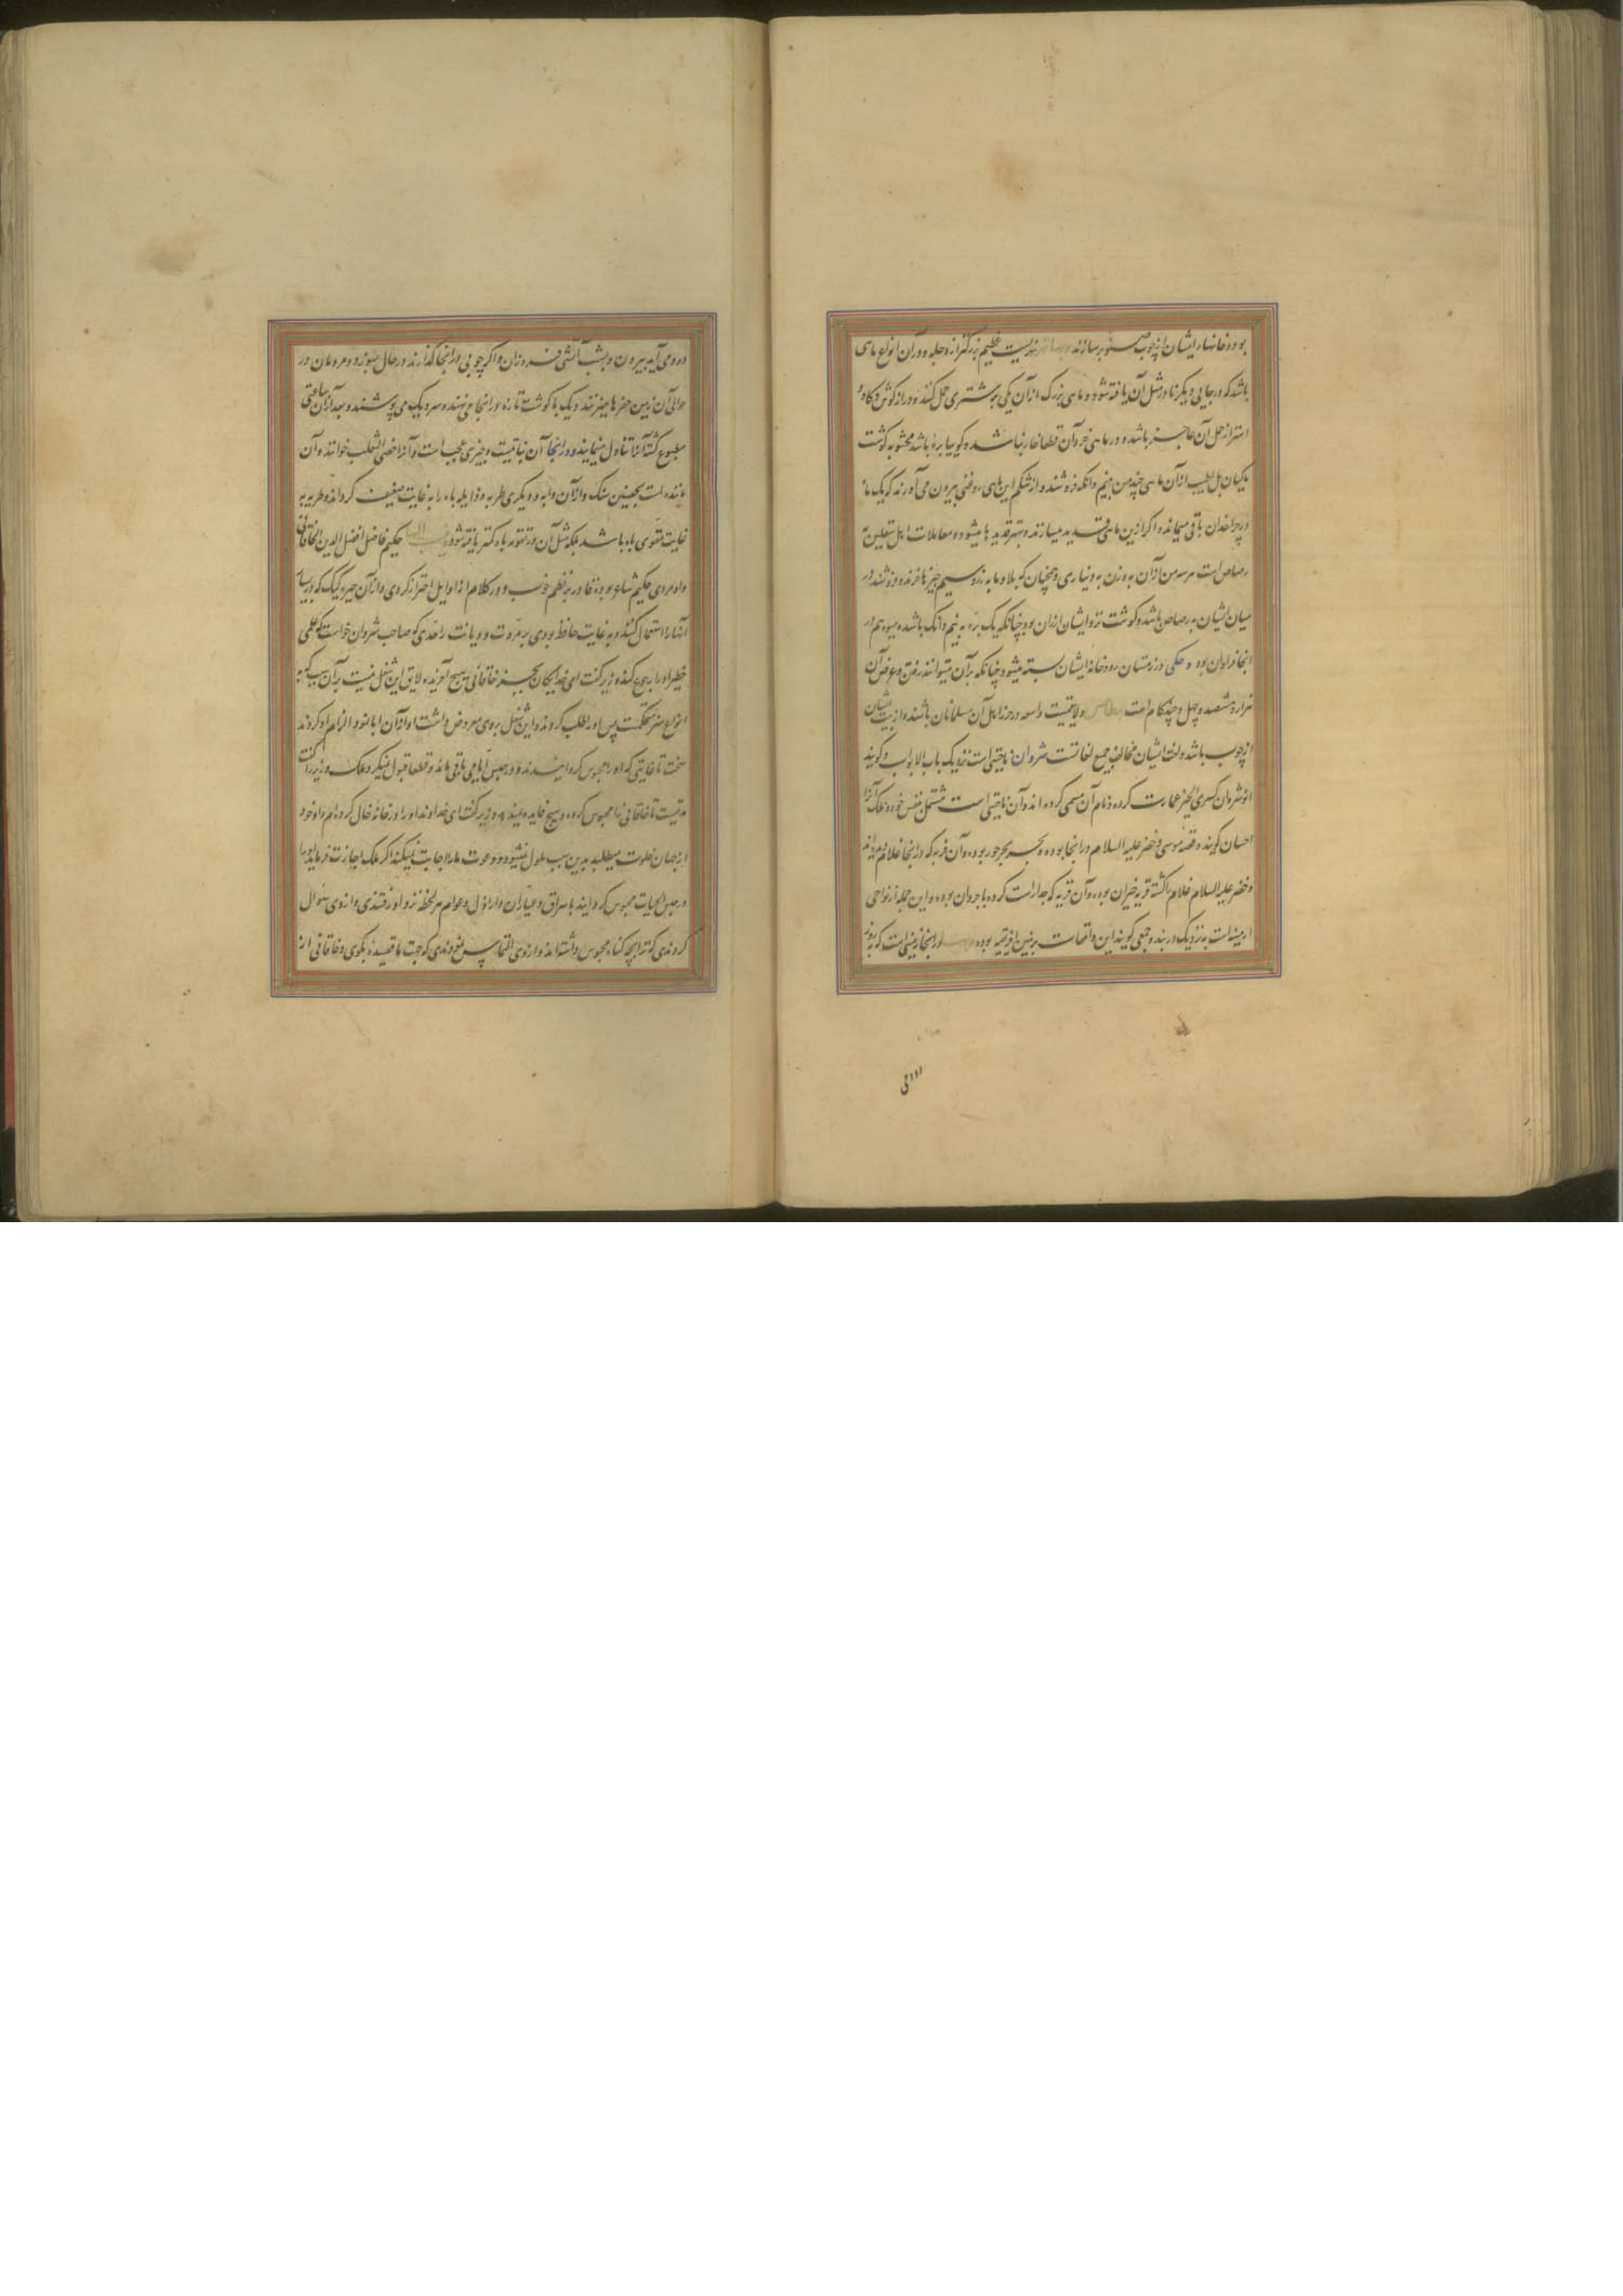 بود و خانهاء ایشان از چوب صنوبر سازند و میانه نهریست عظیم بزرگتر از دجله و در آن انواع ماهی
باشد که در جایی دیگر نادر مثل آن یافته شود و ماهی بزرگ از آن یکی بر شتری حمل کنند و دراز گوش و گاو و
استر از حمل آن عاجز باشد و در ماهی خرد آن قطعا خار نباشد و گوییا برهٔ باشد محشو به گوشت
ماکیان بل اطیب از آن ماهی چند من بنیم دانکه فروشند و از شکم این ماهی روغنی بیرون می آورند که یک ماه
در چراغدان باقی میماند و اگر ازین ماهی قدید میسازند و بهتر قدید ها میشود و معاملات اهل سقلین به
رصاص است هر سه من از آن به وزن به دیناری و همچنان که بلاد ما به زر و سیم چیزها خرند و فروشند در
میان ایشان به رصاص باشد و گوشت نزد ایشان ارزان بود چنانکه یک بره به نیم دانک باشد و میوه هم در
انجا فراوان بود و حکی در زمستان رودخانه ایشان بسته میشود چنانکه بر آن میتوانند رفتن و عرض آن
هزار و ششصد و چهل و چند گام است ولایتیست واسعه در خزر اهل آن مسلمانان باشند و ابنیت ایشان
از چوب باشد و لغت ایشان مخالف جمیع لغاتست شروان ناحیتی است نزدیک باب الابواب و گویند
انوشروان کسری الخیر عمارت کرده و بنام آن مسمی کرده اند و آن ناحیتی است مشتمل بنفس خود و ملک آنرا
اخستان گویند و قصهٔ موسی و خضر علیه السلام در انجا بوده و بحر بحر خزر بوده و آن قریه که در انجا غلام بود
و خضر علیه السلام غلام را کشته قریه خیزان بوده و آن قریه که جدار راست کرده باجروان بوده و این جمله از نواحی
ارمینیه است به نزدیک دربند و جمعی گویند این واقعات بزمین افریقیه بوده در انجا زمینی است که به روز
دود می آید بیرون و بشب آتشی فروزان و اگر چوبی در انجا گذارند در حال بسوزد و مردمان در
حوالی آن زمین حفرها میزنند و یک با گوشت تازه در انجا می نهند و سر دیک می پوشند و بعد از آن ساعتی
مطبوع گشته آنرا تناول مینمایند و در انجا آن نباتیست و چیزی عجیب است و آنرا خصی الثعلب خوانند و آن
ماننده است بچنین سنک و از آن دابه و دیگری طریه و ذابله باه را به غایت ضعیف گرداند و طریه به
غایت مقوی باه باشد بلکه مثل آن در تقویه باه کمتر یافته شود حکیم فاضل افضل الدین الخاقانی
و او مردی حکیم شاعر بوده قادر بر نظم خوب و در کلام از اوایل احتراز کردی و از آن چیز رکیک که در بسیاری
انشا را استعمال کنند و به غایت حافظ بودی بر مروت و دیانت راحدی که صاحب شروان خواست که عملی
خطیر او را رجوع کند وزیر گفت ای خدایگان بحسب هنر خاقانی هیچ آفریده لایق این شغل نیست بر آن سبب که به
انواع هنر متحکمت پس او را طلب کردند و این شغل بر وی معروض داشت او از آن ابا نمود و الزام او کردند
سخت تا غایتی که او را محبوس گردانیدند و در حبس ایامی باقی ماند و قطعا قبول نمیکرد ملک وزیر را گفت
مدتیست تا خاقانی را محبوس کرده و هیچ فایده نمیدهد وزیر گفت ای خداوند او را در خانهٔ خالی کرده ام و او خود
از جهان خلوت میطلبد بدین سبب ملول نمیشود و دعوت ما را اجابت نمیکند اگر ملک اجازت فرماید او را
در حبس الجنایات محبوس گردانید با سراق و عیاران و اراذل و عوام هر لحظه نزد او رفتندی و از وی سئوال
کردندی که ترا بچه گناه محبوس داشته اند و از وی التماس نمودندی که جهت ما قصیدهٔ بگوی و خاقانی از